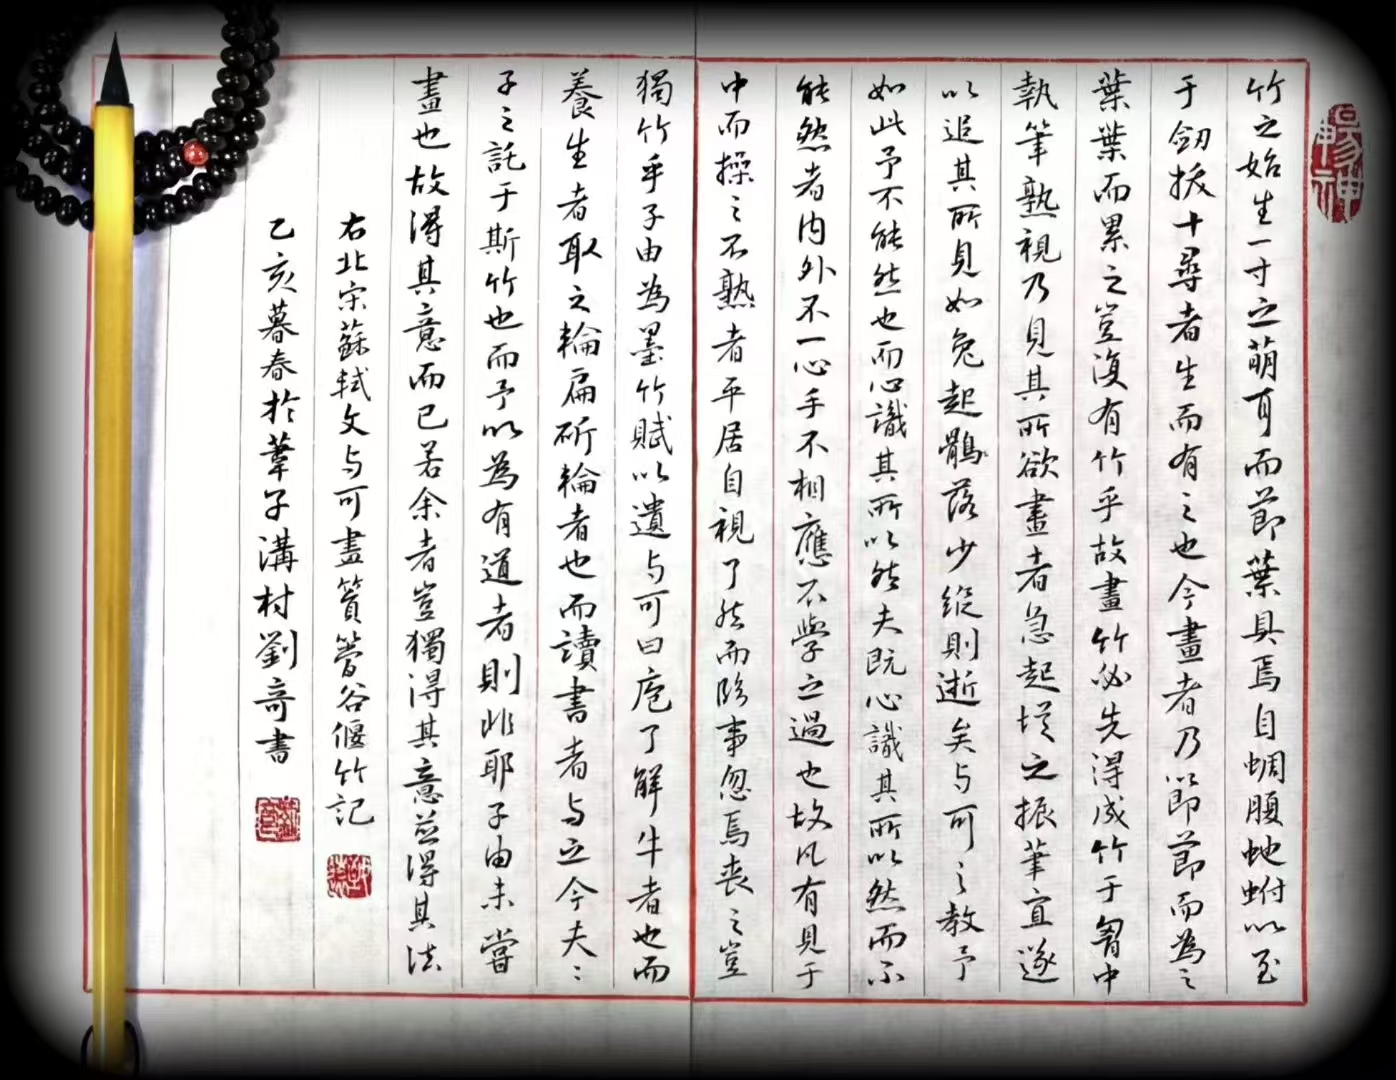 竹之始生一寸之萌耳而節葉具焉自蜩腹蛇蚹以至
于劒拔十尋者生而有之也今畫者乃以即節而為之
葉葉而累之豈復有竹乎故畫竹必先得成竹于胷中
執筆熟視乃見其所欲畫者急起從之振筆直遂
以追其所見如兔起鶻落少縱則逝矣与可之教予
如此予不能然也而心識其所以然夫既心識其所以然而不
能然者内外不一心手不相應不學之過也故凡有見于
中而操之不熟者平居自視了然而臨事忽焉喪之豈
獨竹乎子由為墨竹賦以遺与可曰庖丁解牛者也而
養生者取之輪扁斫輪者也而讀書者与之今夫〻
子之託于斯竹也而予以為有道者則非耶子由未嘗
畫也故得其意而已若余者豈獨得其意並得其法
右北宋蘇軾文与可畫篔簹谷偃竹記
乙亥暮春於葦子溝村劉奇書